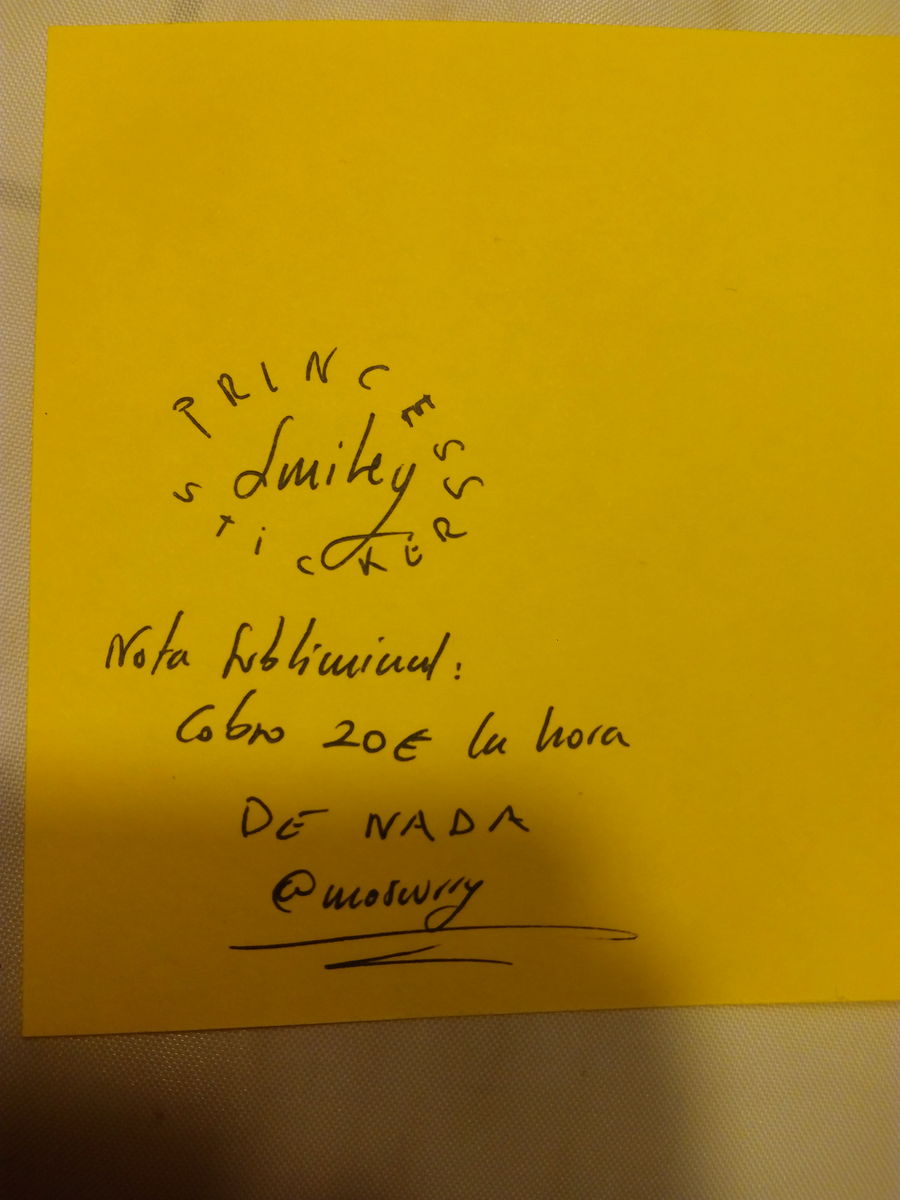 PRINCESS
Smiley
STICKERS
Nota Subliminal:
Cobro 20€ la hora
DE NADA